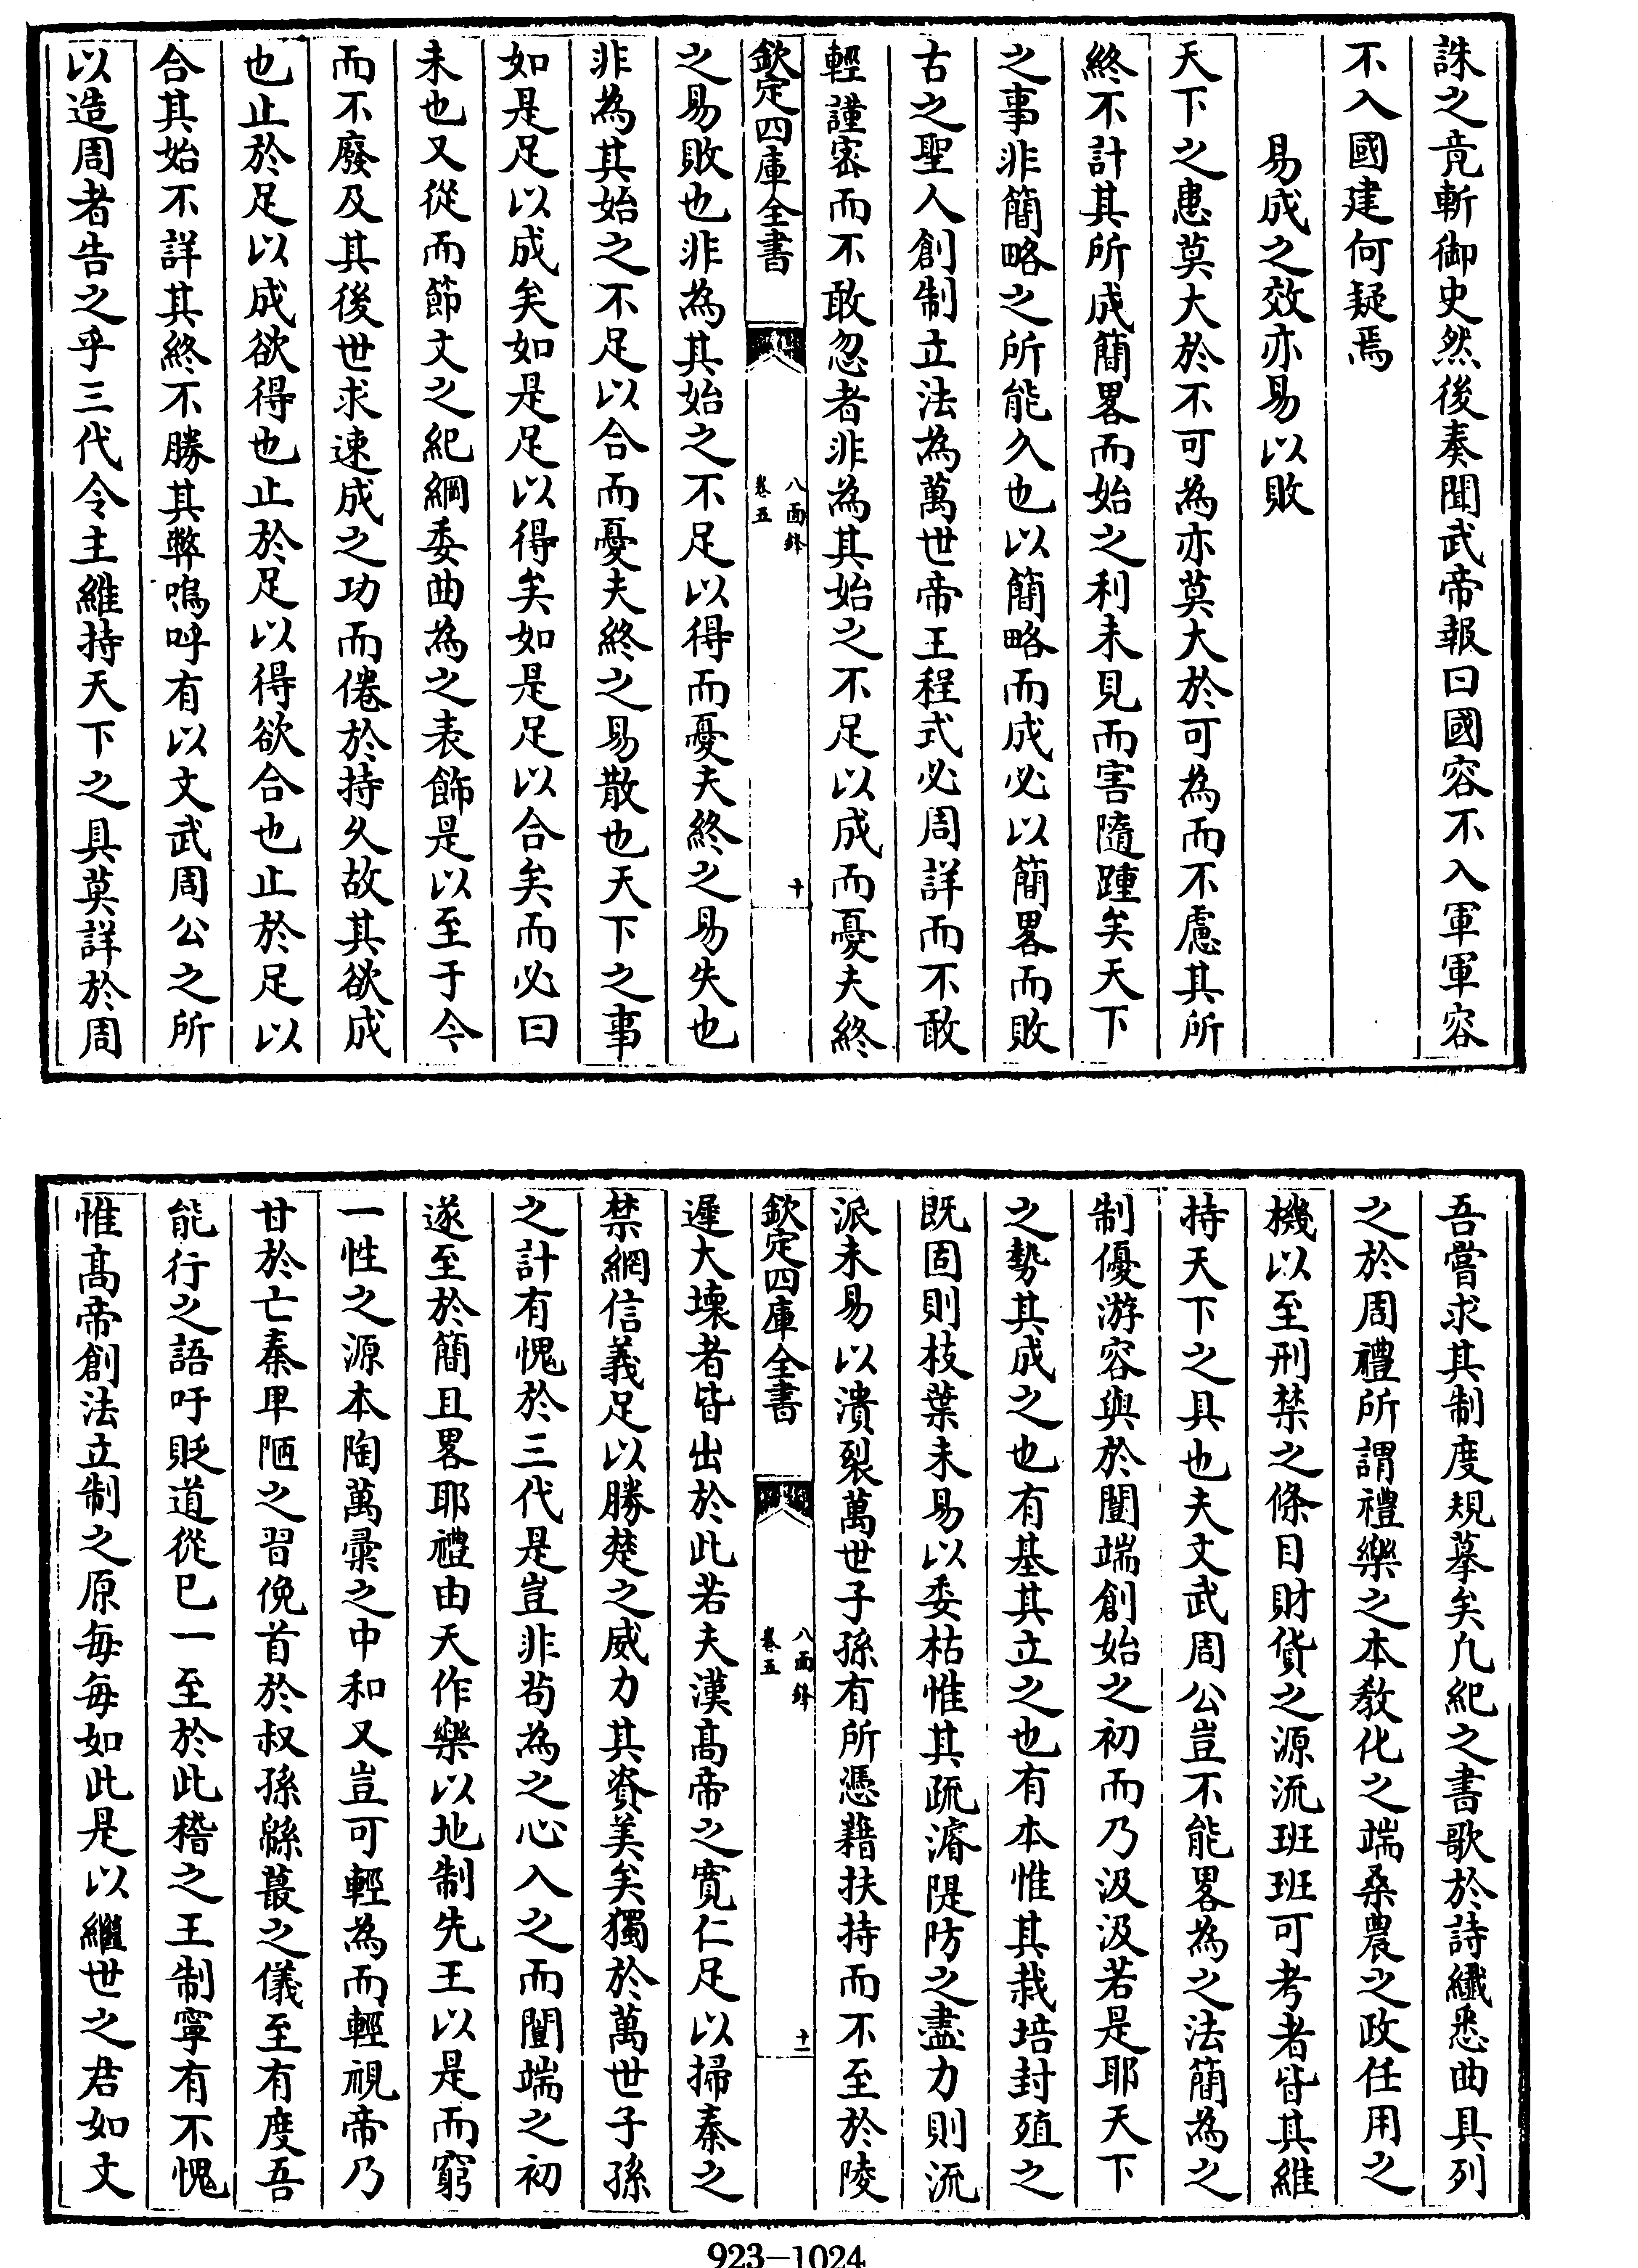 誅之竟斬御史然後奏聞武帝報曰國容不入軍軍容
不入國建何疑焉
易成之效亦易以敗
天下之患莫大於不可為亦莫大於可為而不慮其所
終不計其所成簡畧而始之利未見而害隨踵矣天下
之事非簡略之所能久也以簡略而成必以簡畧而敗
古之聖人創制立法為萬世帝王程式必周詳而不敢
輕謹密而不敢忽者非為其始之不足以成而憂夫終
欽定四庫全書
八面鋒
卷五
十
之易敗也非為其始之不足以得而憂夫終之易失也
非為其始之不足以合而憂夫終之易散也天下之事
如是足以成矣如是足以得矣如是足以合矣而必曰
未也又從而節文之紀綱委曲為之表飾是以至于今
而不廢及其後世求速成之功而倦於持久故其欲成
也止於足以成欲得也止於足以得欲合也止於足以
合其始不詳其終不勝其弊嗚呼有以文武周公之所
以造周者告之乎三代令主維持天下之具莫詳於周
吾嘗求其制度規摹矣凡紀之書歌於詩纖悉曲具列
之於周禮所謂禮樂之本教化之端桑農之政任用之
機以至刑禁之條目財貨之源流班班可考者皆其維
持天下之具也夫文武周公豈不能畧為之法簡為之
制優游容與於闓端創始之初而乃汲汲若是耶天下
之勢其成之也有基其立之也有本惟其栽培封殖之
既固則枝葉未易以委枯惟其疏濬隄防之盡力則流
派未易以潰裂萬世子孫有所憑藉扶持而不至於陵
欽定四庫全書
八面鋒
卷五
十一
遲大壞者皆出於此若夫漢高帝之寛仁足以掃秦之
禁網信義足以勝楚之威力其資美矣獨於萬世子孫
之計有愧於三代是豈非茍為之心入之而闓端之初
遂至於簡且畧耶禮由天作樂以地制先王以是而窮
一性之源本陶萬彙之中和又豈可輕為而輕視帝乃
甘於亡秦卑陋之習俛首於叔孫緜蕞之儀至有度吾
能行之語吁貶道從已一至於此稽之王制寧有不愧
惟高帝創法立制之原每每如此是以繼世之君如文
923-1024